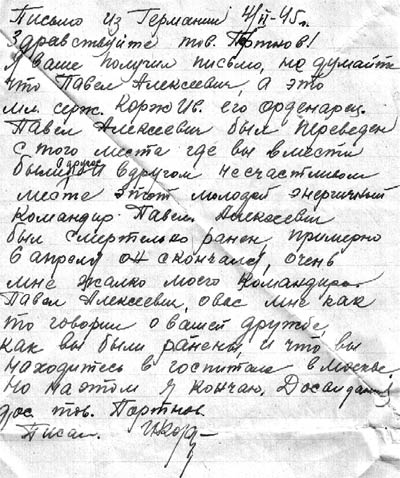 Письмо из Германии 4/II-45г.
Здравствуйте тов. Портнов!
Я ваше получил письмо, не думайте
что Павел Алексеевич, а это
мл. серж. Корж Ив. его орденарец.
Павел Алексеевич был переведен
с того места где вы вмести
были в другое в другом несчастливом
месте этот молодой энергичный
командир Павел Алексеевич
был смертельно ранен, примерно
6 апреля он скончался, очень
мне жалко моего командира
Павел Алексеевич, о вас мне как
то говорил о вашей дружбе,
как вы были ранены, и что вы
находитесь в госпитале в Москве
Но на этом я кончаю. Досвидания
дос тов. Портнов.
Писал.